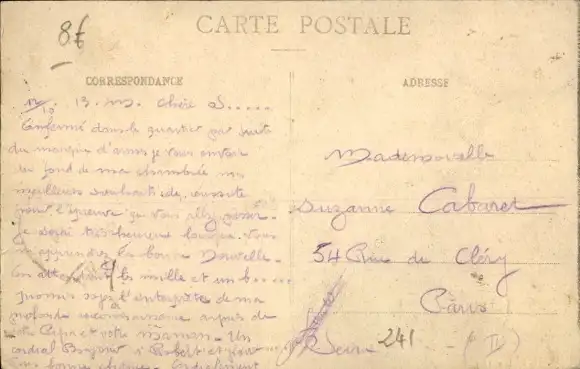 8€
CARTE POSTALE
CORRESPONDANCE
ADRESSE
13. Chère S.....
Confermé dans le quartier par suite
du manque d'armes je vous envoie
du fond de ma chambrée mes
meilleurs souhaits de réussite
pour l'épreuve que vous allez passer.
Je serai très heureux lorsque vous
m'apprendrez la bonne Nouvelle.
En attendant les mille et un b.....
promis soyez l'interprète de ma
profonde reconnaissance auprès de
votre Papa et votre Maman. Un
cordial Bonjour à Robert et pour
bonne chance. Cordialement
Mademoiselle
Suzanne Cabaret
54 Rue de Cléry
Paris
Seine
241